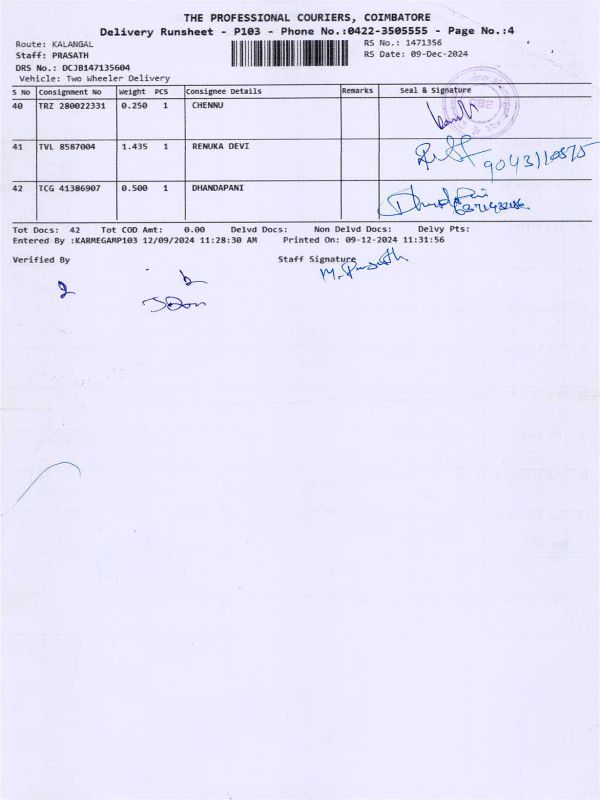 THE PROFESSIONAL COURIERS, COIMBATORE
Delivery Runsheet - P103 - Phone No.:0422-3505555 - Page No.:4
Route: KALANGAL
RS No.: 1471356
Staff: PRASATH
RS Date: 09-Dec-2024
DRS No.: DCJB147135604
Vehicle: Two Wheeler Delivery
S No Consignment No Weight PCS Consignee Details Remarks Seal & Signature
40 TRZ 280022331 0.250 1 CHENNU
41 TVL 8587004 1.435 1 RENUKA DEVI
42 TCG 41386907 0.500 1 DHANDAPANI
Tot Docs: 42 Tot COD Amt: 0.00 Delvd Docs: Non Delvd Docs: Delvy Pts:
Entered By :KARMEGAMP103 12/09/2024 11:28:30 AM Printed On: 09-12-2024 11:31:56
Verified By Staff Signature
M. Prasath